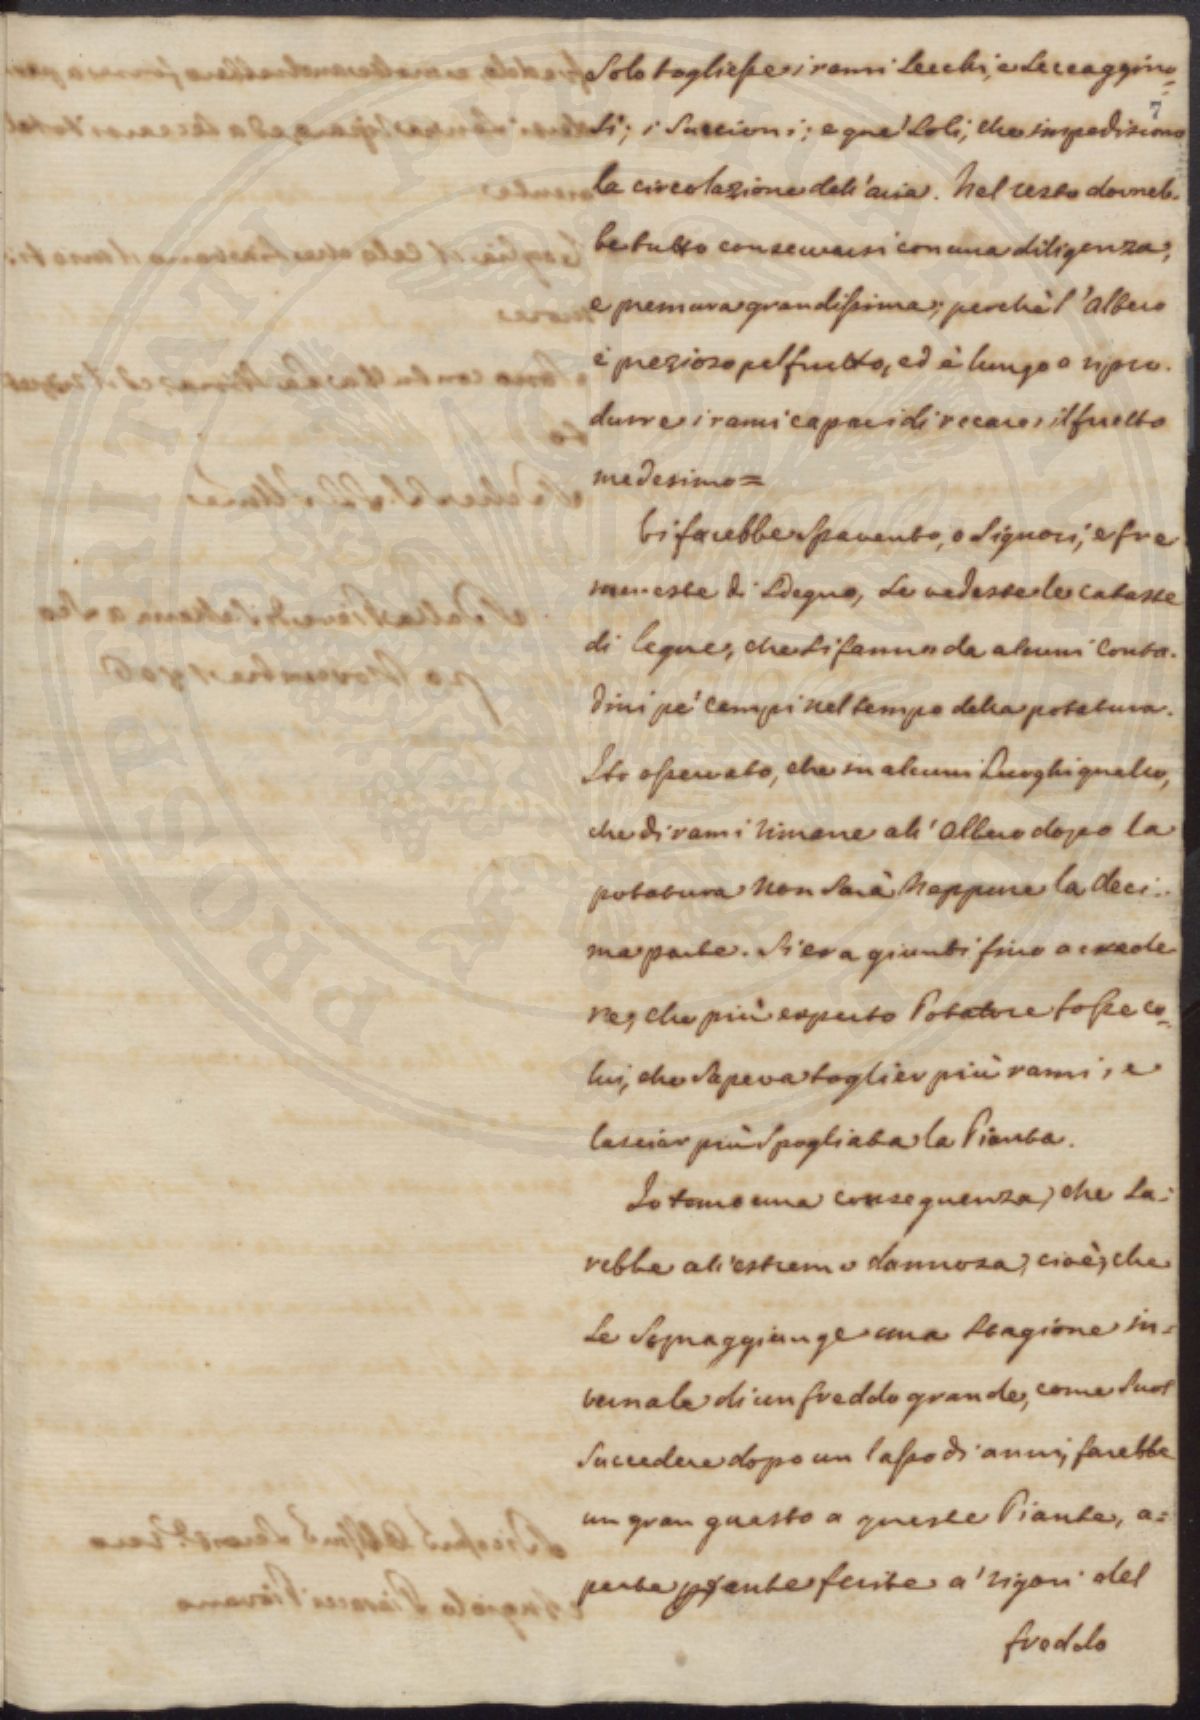 7
Solo togliesse i rami secchi, e seccaggino=
si; i succioni; e que' soli, che impediscono
la circolazione dell'aria. Nel resto dovreb-
be tutto conservarsi con una diligenza,
e premura grandissima; perchè l'albero
è prezioso pel frutto, ed è lungo a ripro-
durre i rami capaci di recare il frutto
medesimo=
Vi farebbe spavento, o Signori, e fre
mereste di sdegno, se vedeste le cataste
di legne, che si fanno da alcuni Conta-
dini pe' campi nel tempo della potatura.
Ho osservato, che in alcuni Luoghi quello,
che di rami rimane all'albero dopo la
potatura non sarà neppure la deci-
ma parte. Si era giunti fino a crede
re, che più esperto Potatore fosse co=
lui, che sapeva toglier più rami, e
lasciar più spogliata la Pianta.
Io temo una conseguenza, che sa=
rebbe all'estremo dannosa, cioè, che
se sopraggiunge una stagione in=
vernale di un freddo grande, come suol
succedere dopo un lasso di anni, farebbe
un gran guasto a queste Piante, a=
perte tante ferite a' rigori del
freddo
PROSPERITATI PUBLICAE